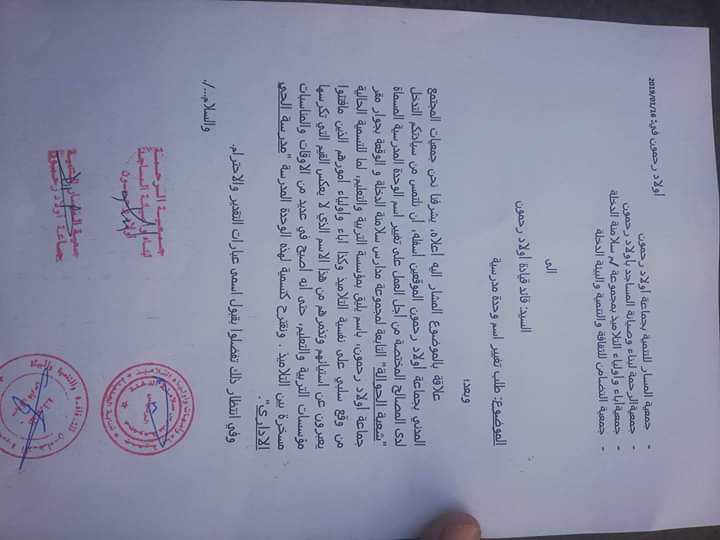 اولاد رحمون في: 2018/01/16
- جمعية المسار للتنمية بجماعة اولاد رحمون
- جمعية الرحمة لبناء وصيانة المساجد باولاد رحمون
- جمعية اباء واولياء التلاميذ بمجموعة م/م سلامنة الدخلة
- جمعية التضامن للثقافة والتنمية والبيئة الدخلة
الى
السيد: قائد قيادة أولاد رحمون
الموضوع: طلب تغيير اسم وحدة مدرسية
وبعد،
علاقة بالموضوع المشار اليه أعلاه، يشرفنا نحن جمعيات المجتمع
المدني بجماعة أولاد رحمون الموقعين أسفله، ان نلتمس من سيادتكم التدخل
لدى المصالح المختصة من أجل العمل على تغيير اسم الوحدة المدرسية المسماة
"شعبة الحوالة" التابعة لمجموعة مدارس سلامنة الدخلة و الوقعة بجوار مقر
جماعة أولاد رحمون، باسم يليق بمؤسسة التربية والتعليم، لما للتسمية الحالية
من وقع سلبي على نفسية التلاميذ وكذا اباء واولياء أمورهم الذين مافتئوا
يعبرون عن استيائهم وتذمرهم من هذا الاسم الذي لا يعكس القيم التي تكرسها
مؤسسات التربية والتعليم، حتى أنه أصبح في عديد من الاوقات والمناسبات
مسخرة بين التلاميذ. ونقترح كتسمية لهذه الوحدة المدرسة "مدرسة الحي
الاداري".
وفي انتظار ذلك تفضلوا بقبول اسمى عبارات التقدير والاحترام.
والسلام.../.
جمعية الرحمة
لبناء وصيانة المساجد
جمعية المسار للتنمية
جماعة اولاد رحمون